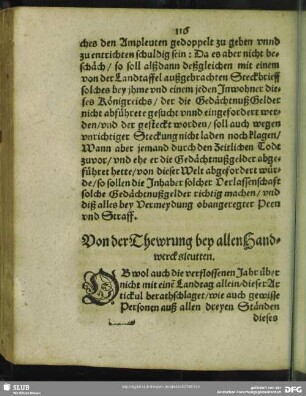 116
ches den Ampleuten gedoppelt zu geben vnnd
zu entrichten schuldig sein: Da es aber nicht be-
schåch/ so soll alßdann deßgleichen mit einem
von der Landtaffel außgebrachten Steckbrieff
solches bey jhme vnd einem jeden Inwohner die-
ses Königreichs/ der die Gedächtnuß Gelder
nicht abführete gesucht vnnd eingefordert wer-
den/vnd der gesteckt worden/ soll auch wegen
vnrichtiger Steckung nicht laden noch klagen/
Wann aber jemand durch den Zeitlichen Todt
zuvor/ vnd ehe er die Gedächtnußgelder abge-
führet hette/ von dieser Welt abgefordert wür-
de/ so sollen die Inhaber solcher Verlassenschaft
solche Gedächtnußgelder richtig machen/ vnd
diß alles bey Vermeydung obangeregter Peen
vnd Straff.
Von der Thewrung bey allen Hand-
wercksleutten.
OB wol auch die verflossenen Jahr über
nicht mit einē Landtag allein/dieser Ar-
tickul berathschlaget/wie auch gewisse
Personen auß allen dreyen Ständen
dieses
SLUB
DFG